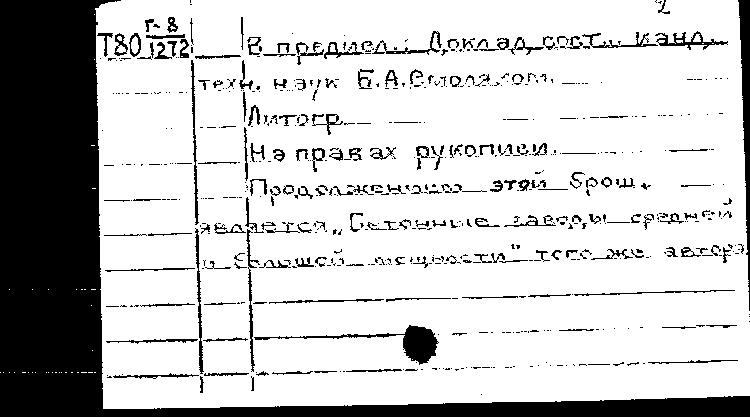 2
Т80 Г-8/1272 В предисл.: Доклад сост. канд.
техн. наук Б.А.Смоляком.
Литогр.
На правах рукописи.
Продолжением этой брош.
является „Бетонные заводы средней
и большой мощности" того же автора